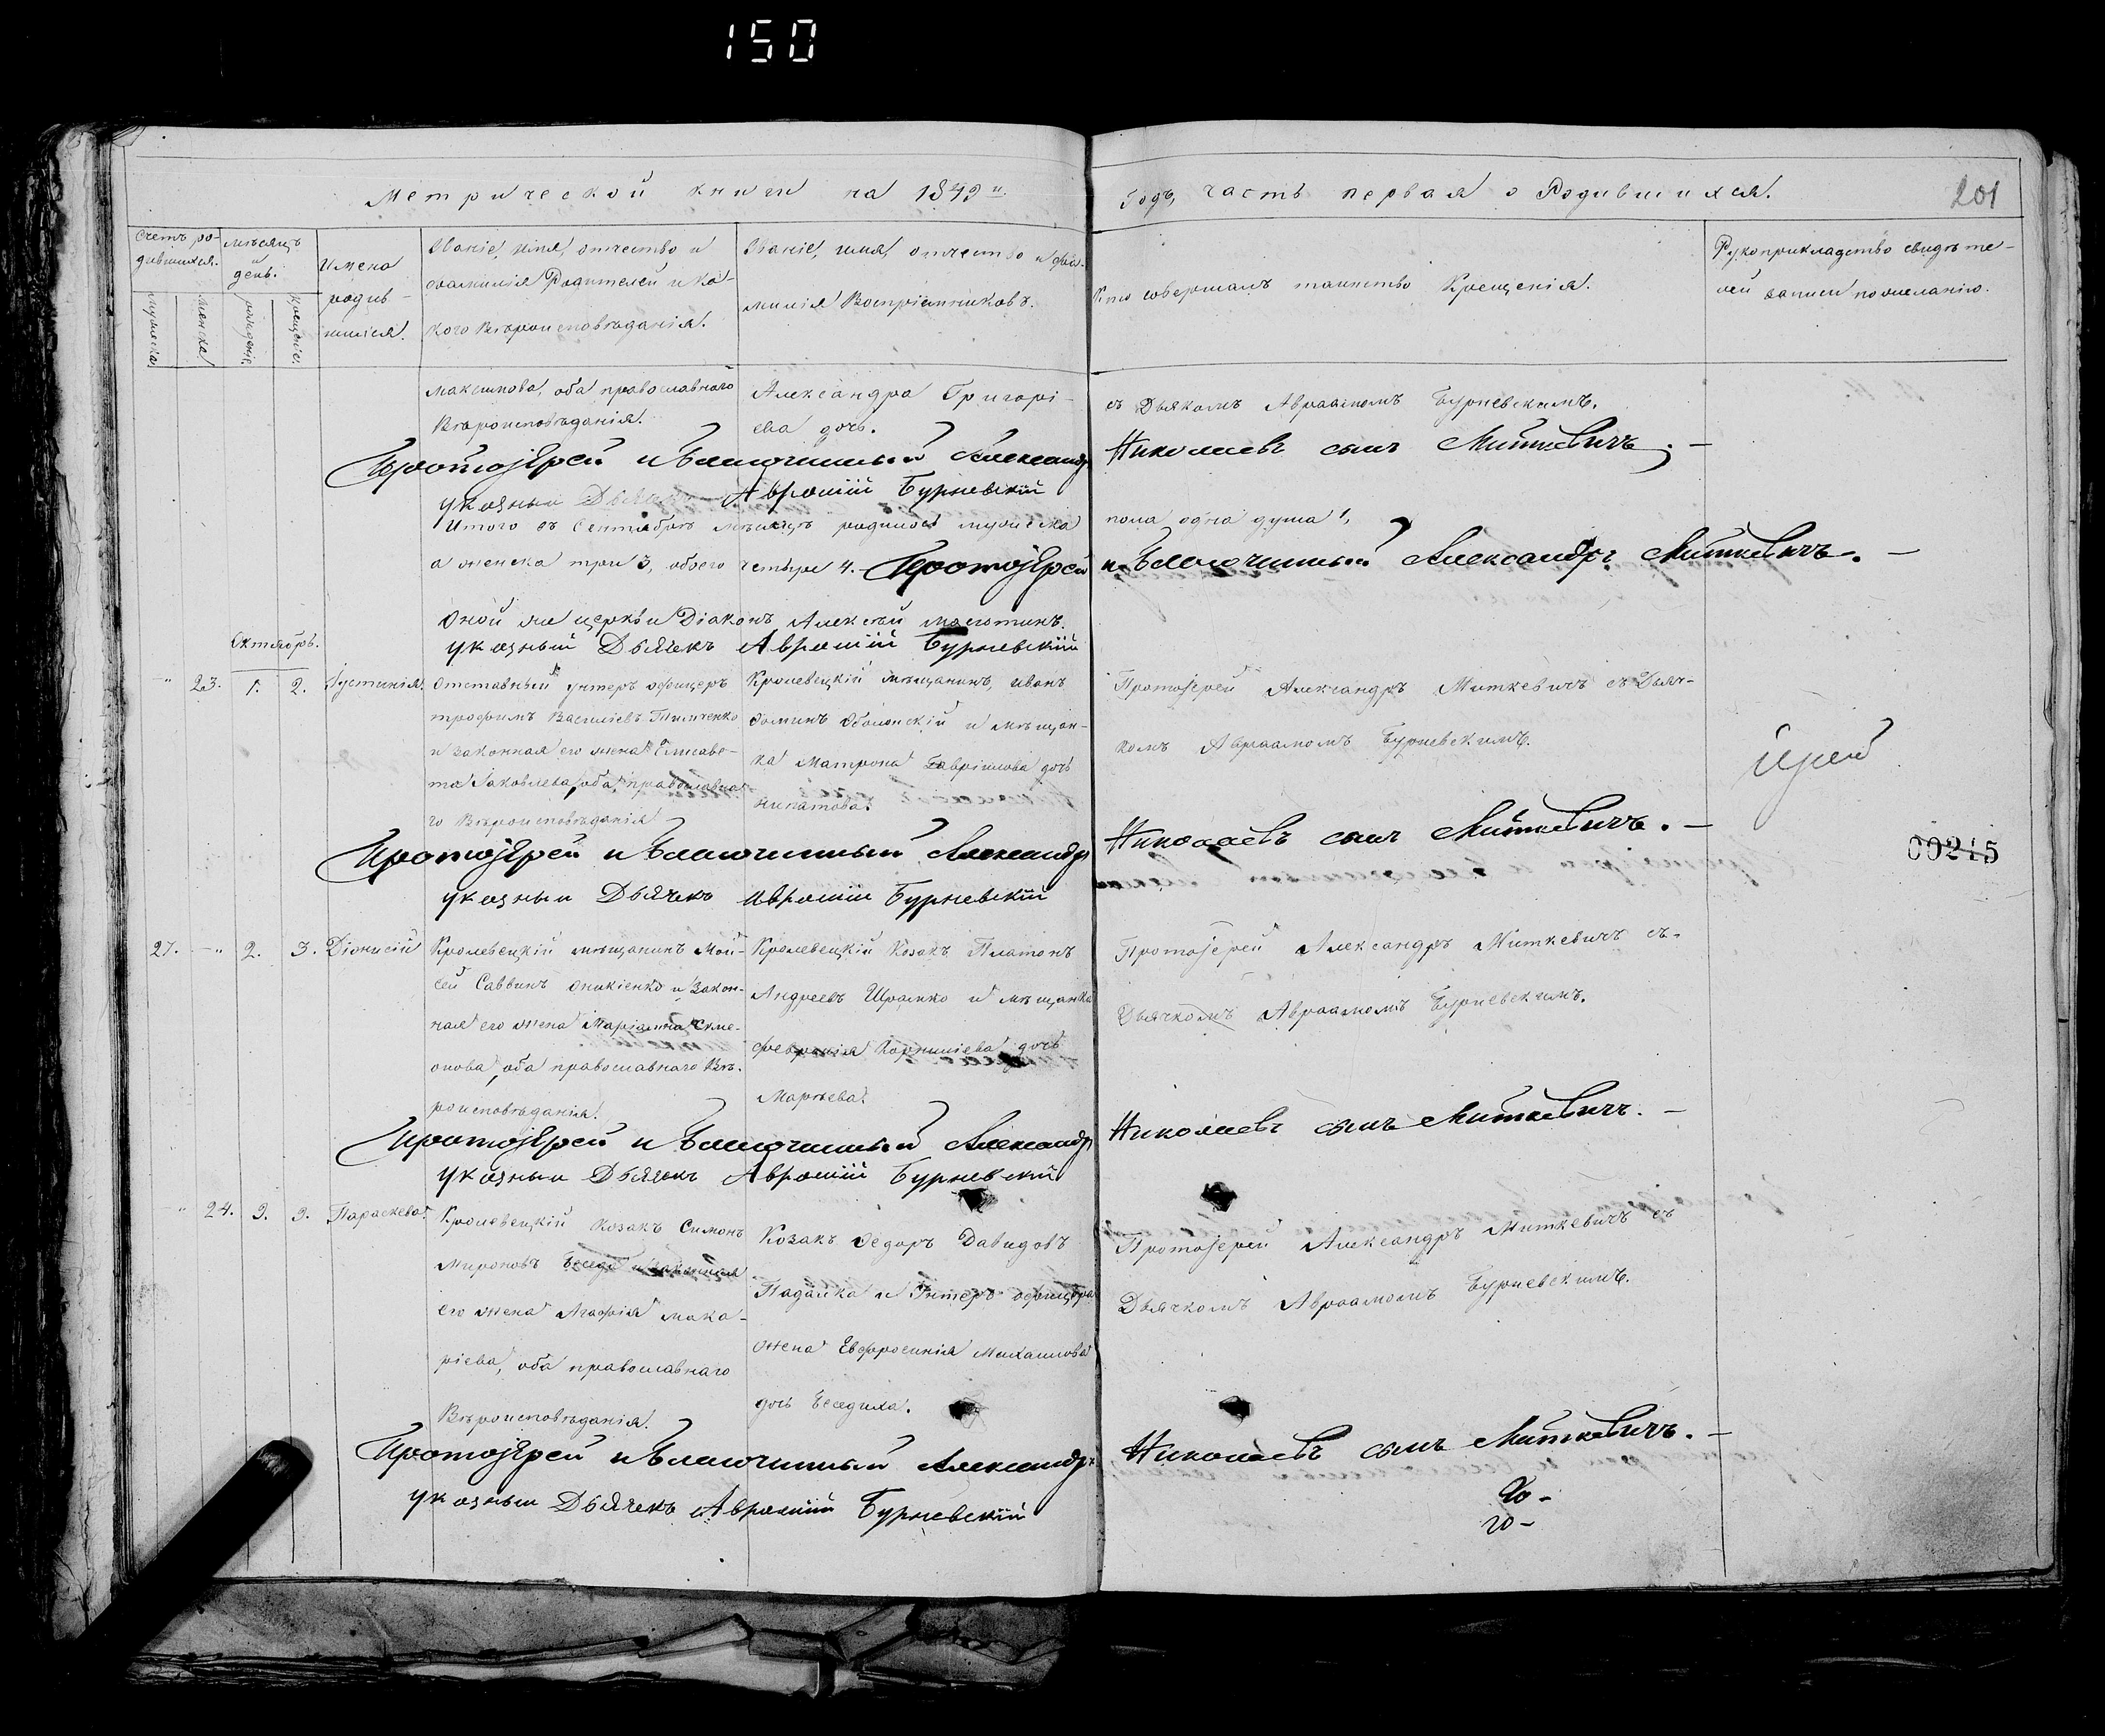 150
Метрической книги на 1849й Годъ, часть первая о Родившихся. 201
Счетъ родившихся.
мужеска
женска
мѣсяцъ и день.
рожденіе
крещеніе
Имена родившихся.
Званіе, имя, отчество и
фамилія Родителей и ка-
кого Вѣроисповѣданія.
Званіе, имя, отчество и фа-
милія Воспріемниковъ.
Кто совершалъ таинство Крещенія.
Рукоприкладство свидѣте-
лей записи по желанію.
Максимова, оба православнаго
Вѣроисповѣданія.
Александра Григорі-
ева дочь.
съ Дьякомъ Авраамомъ Бурневскимъ.
Протоіерей и Благочинный Александръ Николаевъ сынъ Миткевичъ. —
указный Дьячекъ Аврамій Бурневскій
Итого въ Сентябрѣ мѣсяцѣ родилось мужеска пола одна душа 1,
а женска три 3, обоего четыре 4. — Протоіерей и Благочинный Александръ Миткевичъ. —
Оной же церкви Діаконъ Алексѣй
указный Дьячекъ Аврамій Бурневскій
Октябрь.
" 23. 1. 2. Іустинія.
Отставный унтеръ офицеръ
трофимъ Васильевъ Тимченко
и законная его жена Елисаве-
та Іаковлева, оба православна-
го Вѣроисповѣданія
Кролевецкій мѣщанинъ, иванъ
Фоминъ Оболонскій и мѣщан-
ка Матрона Гавріилова дочь
Протоіерей Александръ Миткевичъ съ Дьяч-
комъ Авраамомъ Бурневскимъ.
Іерей
Протоіерей и Благочинный Александръ Николаевъ сынъ Миткевичъ. —
00215
указный Дьячекъ Аврамій Бурневскій
27. — " 2. 3. Діонисій
Кролевецкій мѣщанинъ Мои-
сей Саввинъ Оникіенко и Закон-
ная его жена Маріамна Симе-
онова, оба православнаго Вѣ-
роисповѣданія.
Кролевецкій Козакъ Платонъ
Андреевъ Шрамко и мѣщанка
Февронія Корниліева дочь
Марѣева.
Протоіерей Александръ Миткевичъ съ
Дьячкомъ Авраамомъ Бурневскимъ.
Протоіерей и Благочинный Александръ Николаевъ сынъ Миткевичъ. —
указный Дьячекъ Аврамій Бурневскій
" 24. 9. 9. Параскева.
Кролевецкій Козакъ Симонъ
Мироновъ Беседа и законная
его жена Агафія мака-
ріева, оба православнаго
Вѣроисповѣданія.
Козакъ Федоръ Давидовъ
Падалка и Унтеръ офицера
жена Евфросинія Михаилова
дочь Беседина.
Протоіерей Александръ Миткевичъ съ
Дьячкомъ Авраамомъ Бурневскимъ.
Протоіерей и Благочинный Александръ Николаевъ сынъ Миткевичъ. —
указный Дьячекъ Аврамій Бурневскій